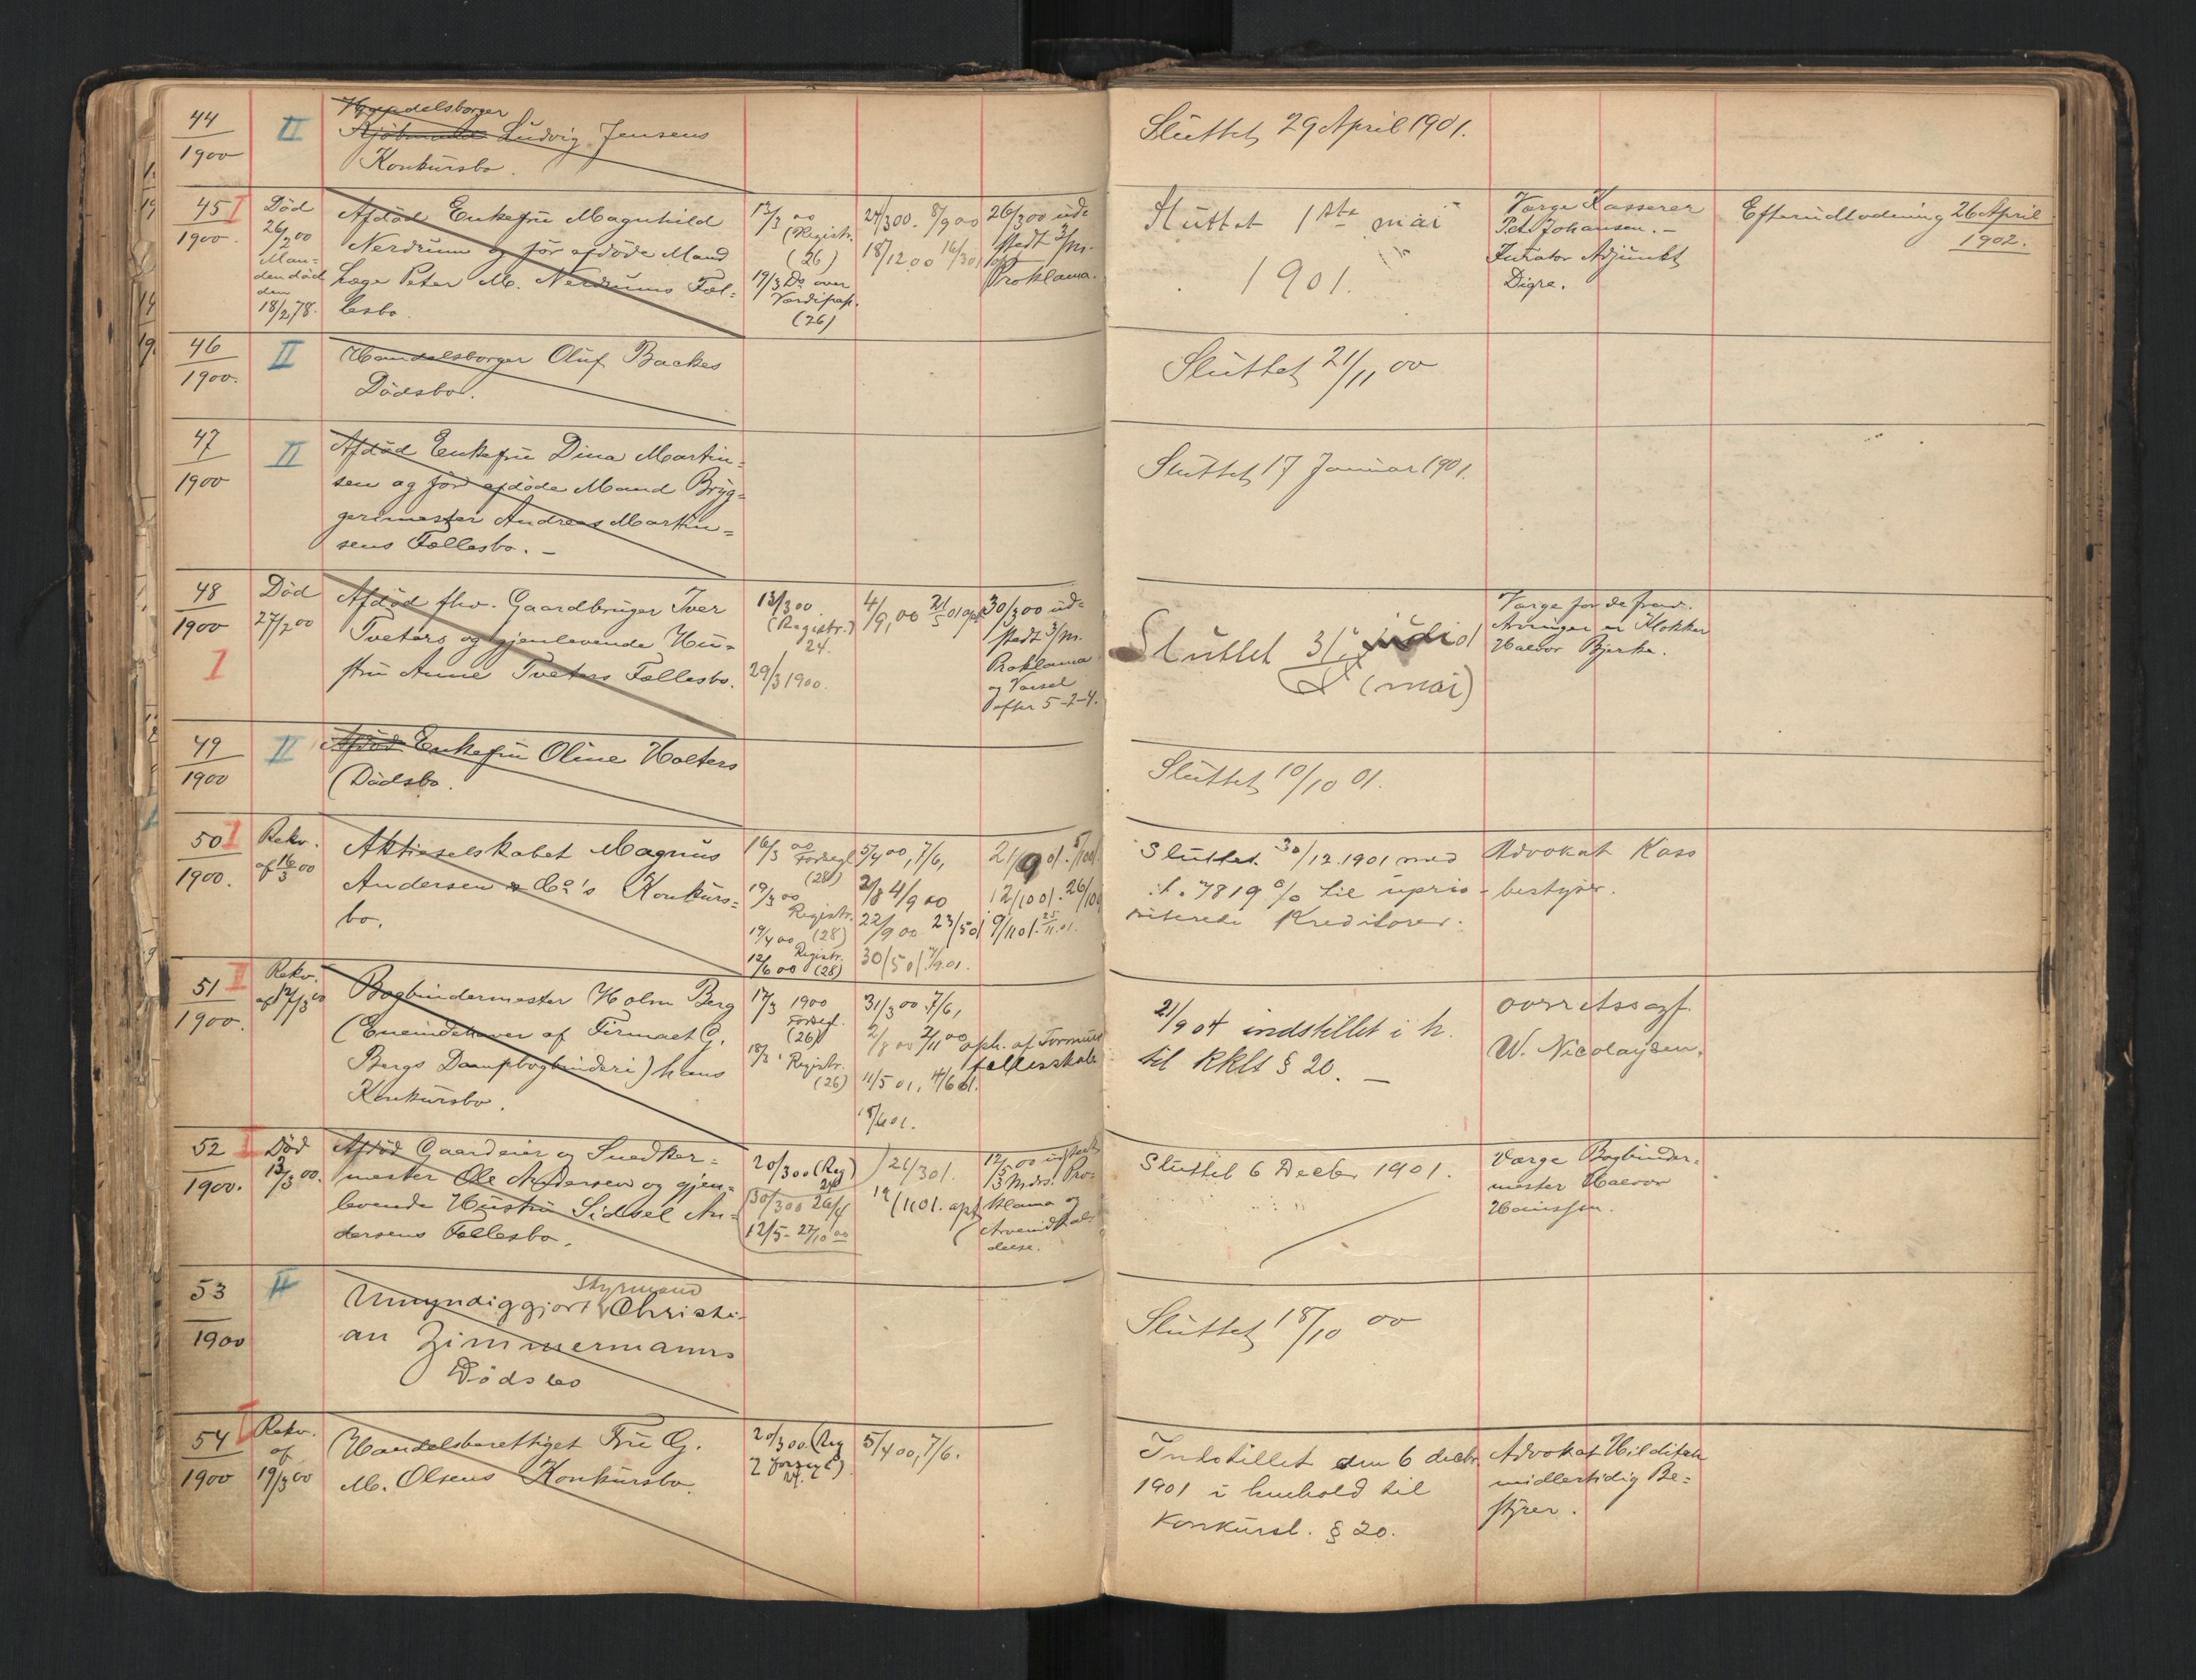 44
1900
II
Handelsborger
Kjöbmand Ludvig Jensens
Konkursbo.
Sluttet 29 April 1901.
45 I
1900.
Död
26/2 00
Man-
den död
den
18/2 78.
Afdöd Enkefru Magnhild
Nerdrum og för afdöde Mand
Læge Peter M. Nerdrums Fæl-
lesbo.
13/3 00
(Registr.
(26)
19/3 Do over
Værdipap.
(26)
24/3 00. 8/9 00
18/12 00
26/3 00 ud-
stedt 3/m.
Proklama.
Sluttet 1ste mai
1901.
Værge Kasserer
Pet. Johansen. -
Kurator Adjunkt
Digre.
Efterudlodning 26 April
1902.
46
1900.
II
Handelsborger Oluf Backes
Dödsbo.
Sluttet 21/11 00
47
1900
II
Afdöd Enkefru Dina Martin-
sen og för afdöde Mand Bryg-
gerimester Andreas Martin-
sens Fællesbo. -
Sluttet 17 Januar 1901.
48
1900
I
Död
27/2 00
Afdöd fhv. Gaardbruger Iver
Tveters og gjenlevende Hu-
stru Anne Tveters Fællesbo.
13/3 00.
(Registr.)
24.
29/3 1900.
4/9 00
30/3 00 ud-
stedt 3/m.
Proklama
og Varsel
efter 5-2-4.
Sluttet 31 juli 01
(mai)
Værge for de fravr.
Arvinger er Klokker
Halvor Bjerke.
49
1900
II
Afdöd Enkefru Oline Holters
Dödsbo.
Sluttet 10/10 01.
50 I
1900.
Rekv.
af 16/3 00
Aktieselskabet Magnus
Andersen & Co's Konkurs-
bo.
16/3 00
Forsegl.
(28)
19/3 00
Registr.
19/4 00 (28)
Registr.
12/6 00 (28)
5/4 00, 7/6,
2/8 4/9 00
22/9 00 23/5 01
30/5 01
21/9 01.
12/10 01. 26/10
9/11 01. 25/11. 01.
Sluttet 30/12. 1901 med
78 19 % til uprio-
riterede Kreditorer.
Advokat Kaso
bestyrer.
51 I
1900.
Rekv.
af 17/3 00
Bogbindermester Holm Berg
(Eneindehaver af Firmaet G.
Bergs Dampbogbinderi) hans
Konkursbo.
17/3 1900
Forsegl.
(26)
18/3 Registr.
(26)
31/3 00. 7/6,
2/8 00 2/11 00 oph. af Formues
fællesskab
11/5 01.
21/9 04 indstillet i h.
til kklt § 20. -
overretssagf.
W. Nicolaysen.
52 I
1900.
Död
13/3 00.
Afdöd Gaardeier og Snedker-
mester Ole Andersen og gjen-
levende Hustru Sidsel An-
dersens Fællesbo.
20/3 00 (Reg)
30/3 00 26/4
12/5 - 27/10 00
12/5 00 udstedt
3 Mdrs. Pro-
klama og
Arveindkal-
delse.
Sluttet 6 Decbr 1901.
Værge Bogbinder-
mester Halvor
53
1900
II
Styrmand
Umyndiggjort Christi-
an Zimmermanns
Dödsbo
Sluttet 18/10 00
54 I
1900
Rekv.
af
19/3 00
Handelsberettiget Fru G.
M. Olsens Konkursbo.
20/3 00. (Reg
5/4 00, 7/6.
Indstillet den 6 decbr
1901 i henhold til
Konkursl. § 20.
Advokat Hilditch
midlertidig Be-
styrer.